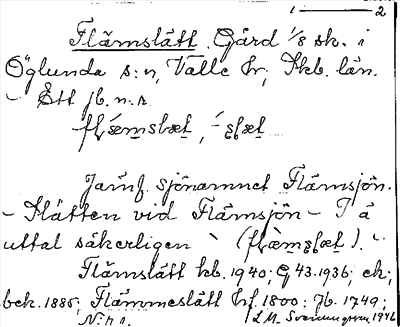 1 — 2
Flämslätt. Gård 1/8 sk. i
Öglunda s:n, Valle hr, Skb. län.
- Ett jb. n.r.
Jämf. sjönamnet Flämsjön.
- Slätten vid Flämsjön - I ä
uttal säkerligen ` (
Flämslätt kb. 1940; G 43.1936; ek;
bek. 1885; Flämmeslätt hf. 1800; Jb. 1749;
N:r 1. L.M. Svenungsson 1946